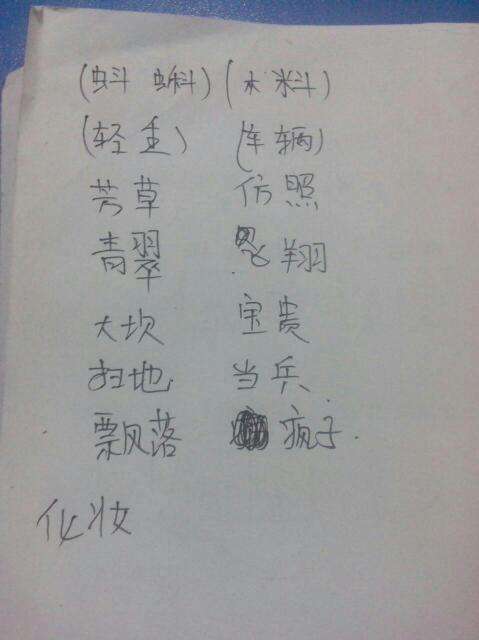 (蚪蝌)(木料)
(轻重)(车辆)
芳草 仿照
青翠 飞翔
大坎 宝贵
扫地 当兵
飘落 疯子.
化妆